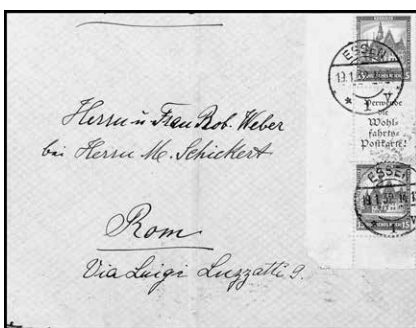 ESSEN
Verwende
die
Wohl-
fahrts-
Postkarte!
ESSEN
Herrn u. Frau Rob. Weber
bei Herrn M. Schickert
Rom
Via Luigi Luzzatti 9.